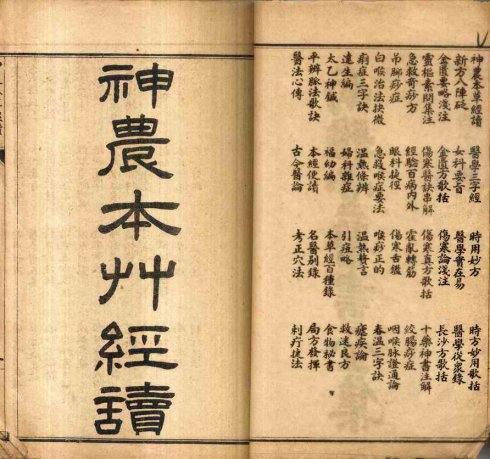 神農本草經讀 醫學三字經 時用妙方 時方妙用歌括
新方八陣砭 女科要旨 醫學實在易 醫學從衆錄
金匱要略淺注 金匱方歌括 傷寒論淺注 長沙方歌括
靈樞素問集注 傷寒醫訣串解 傷寒真方歌括 十藥神書注解
急救奇痧方 經驗百病內外 霍亂轉筋 絞腸痧症
吊腳痧症 眼科捷徑 傷寒舌鑑 咽喉脉證通論
白喉治法抉微 急救喉症要法 喉痧正的 春溫三字訣
痢症三字訣 溫熱條辨 溫熱贅言 瘧疾論
達生編 婦科雜症 引痘略 救迷良方
太乙神鍼 福幼編 本草經百種錄 食物秘書
平辨脉法歌訣 本經便讀 名醫別錄 局方發揮
醫法心傳 古今醫論 考正穴法 刺疔捷法
神農本艸經讀